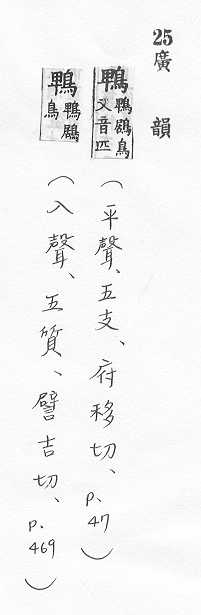 25廣韻
鵯鵯鶋鳥又音匹（平聲、五支、府移切、p.47）
鵯鵯鶋鳥（入聲、五質、譬吉切、p.469）